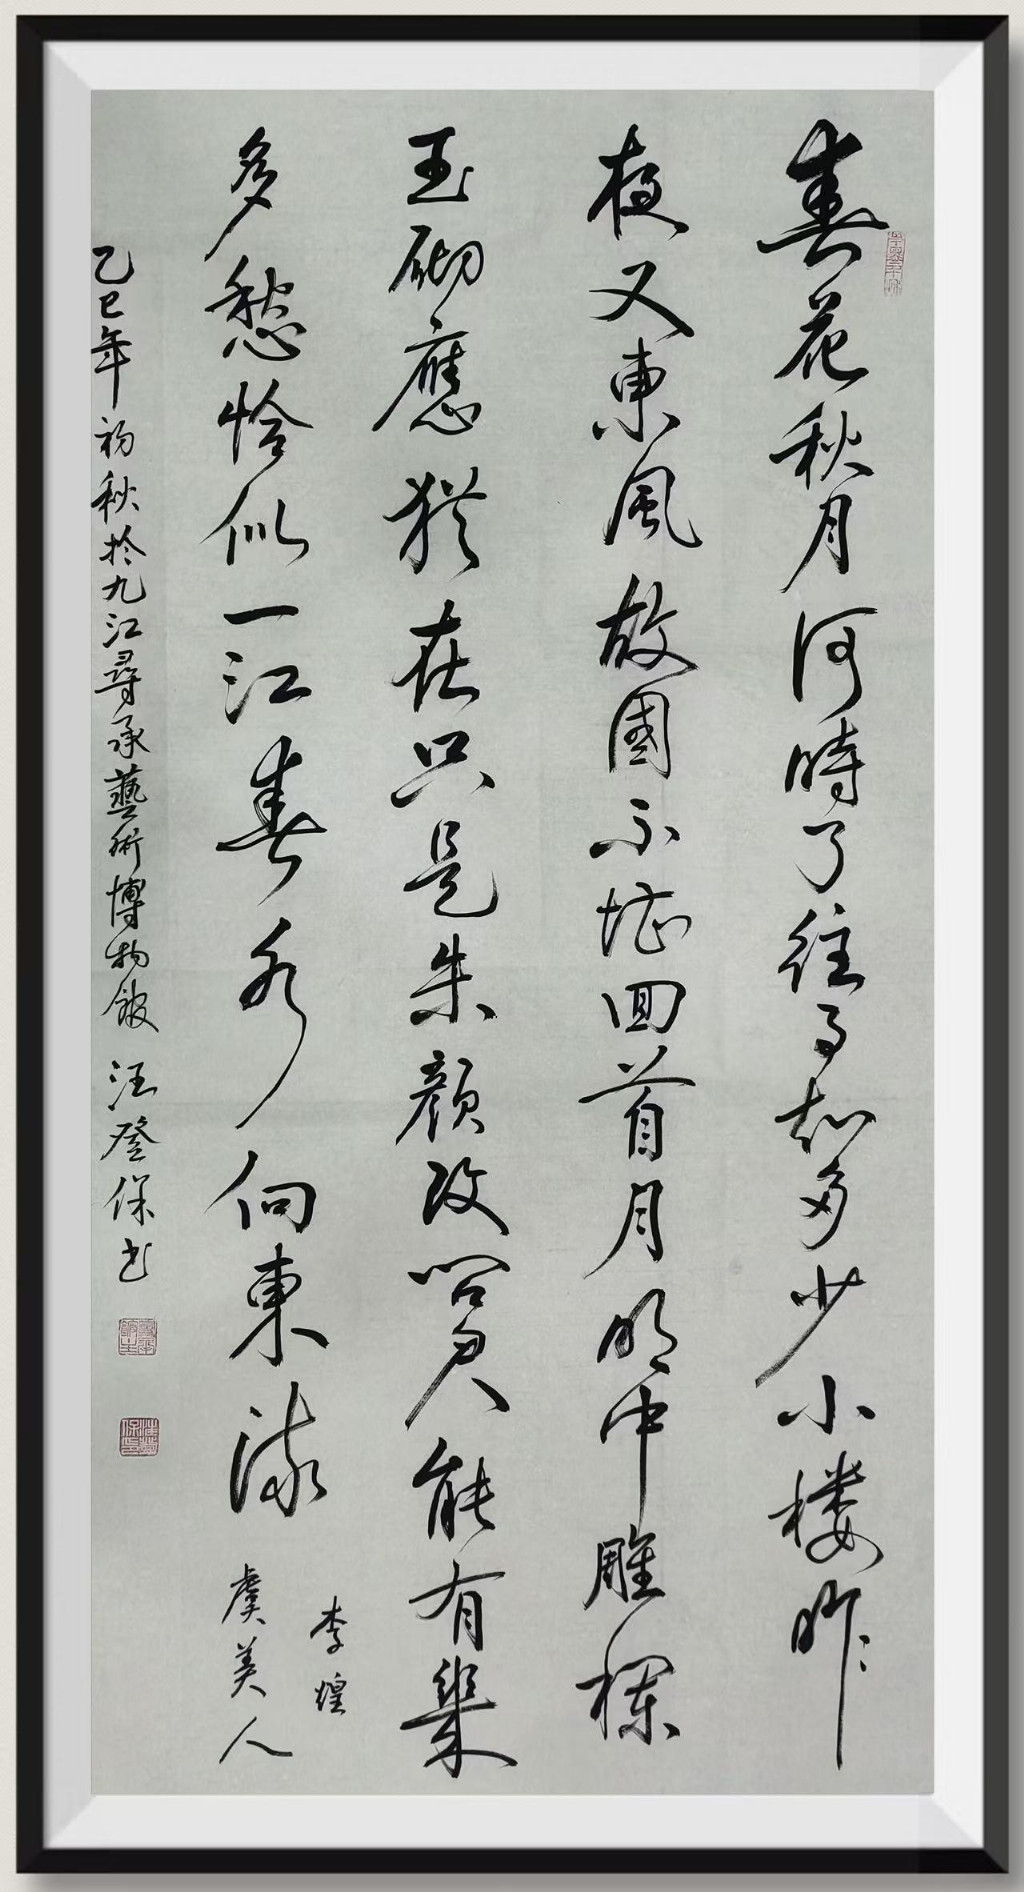 春花秋月何時了往事知多少小楼昨
夜又東風故國不堪回首月明中雕欄
玉砌應猶在只是朱顏改問君能有幾
多愁恰似一江春水向東流
李煜
虞美人
乙巳年初秋於九江尋承藝術博物館 汪登保书